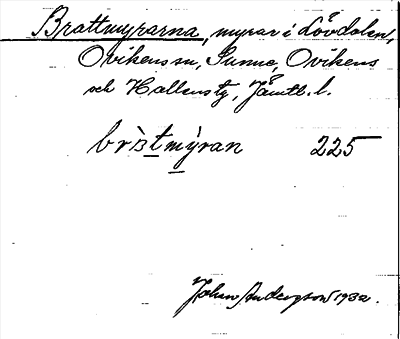 Brattmyrarna, myrar i Lövdalen,
Ovikens sn, Sunne, Ovikens
och Hallens tg, Jämtl. l.
225
John Andersson 1932.